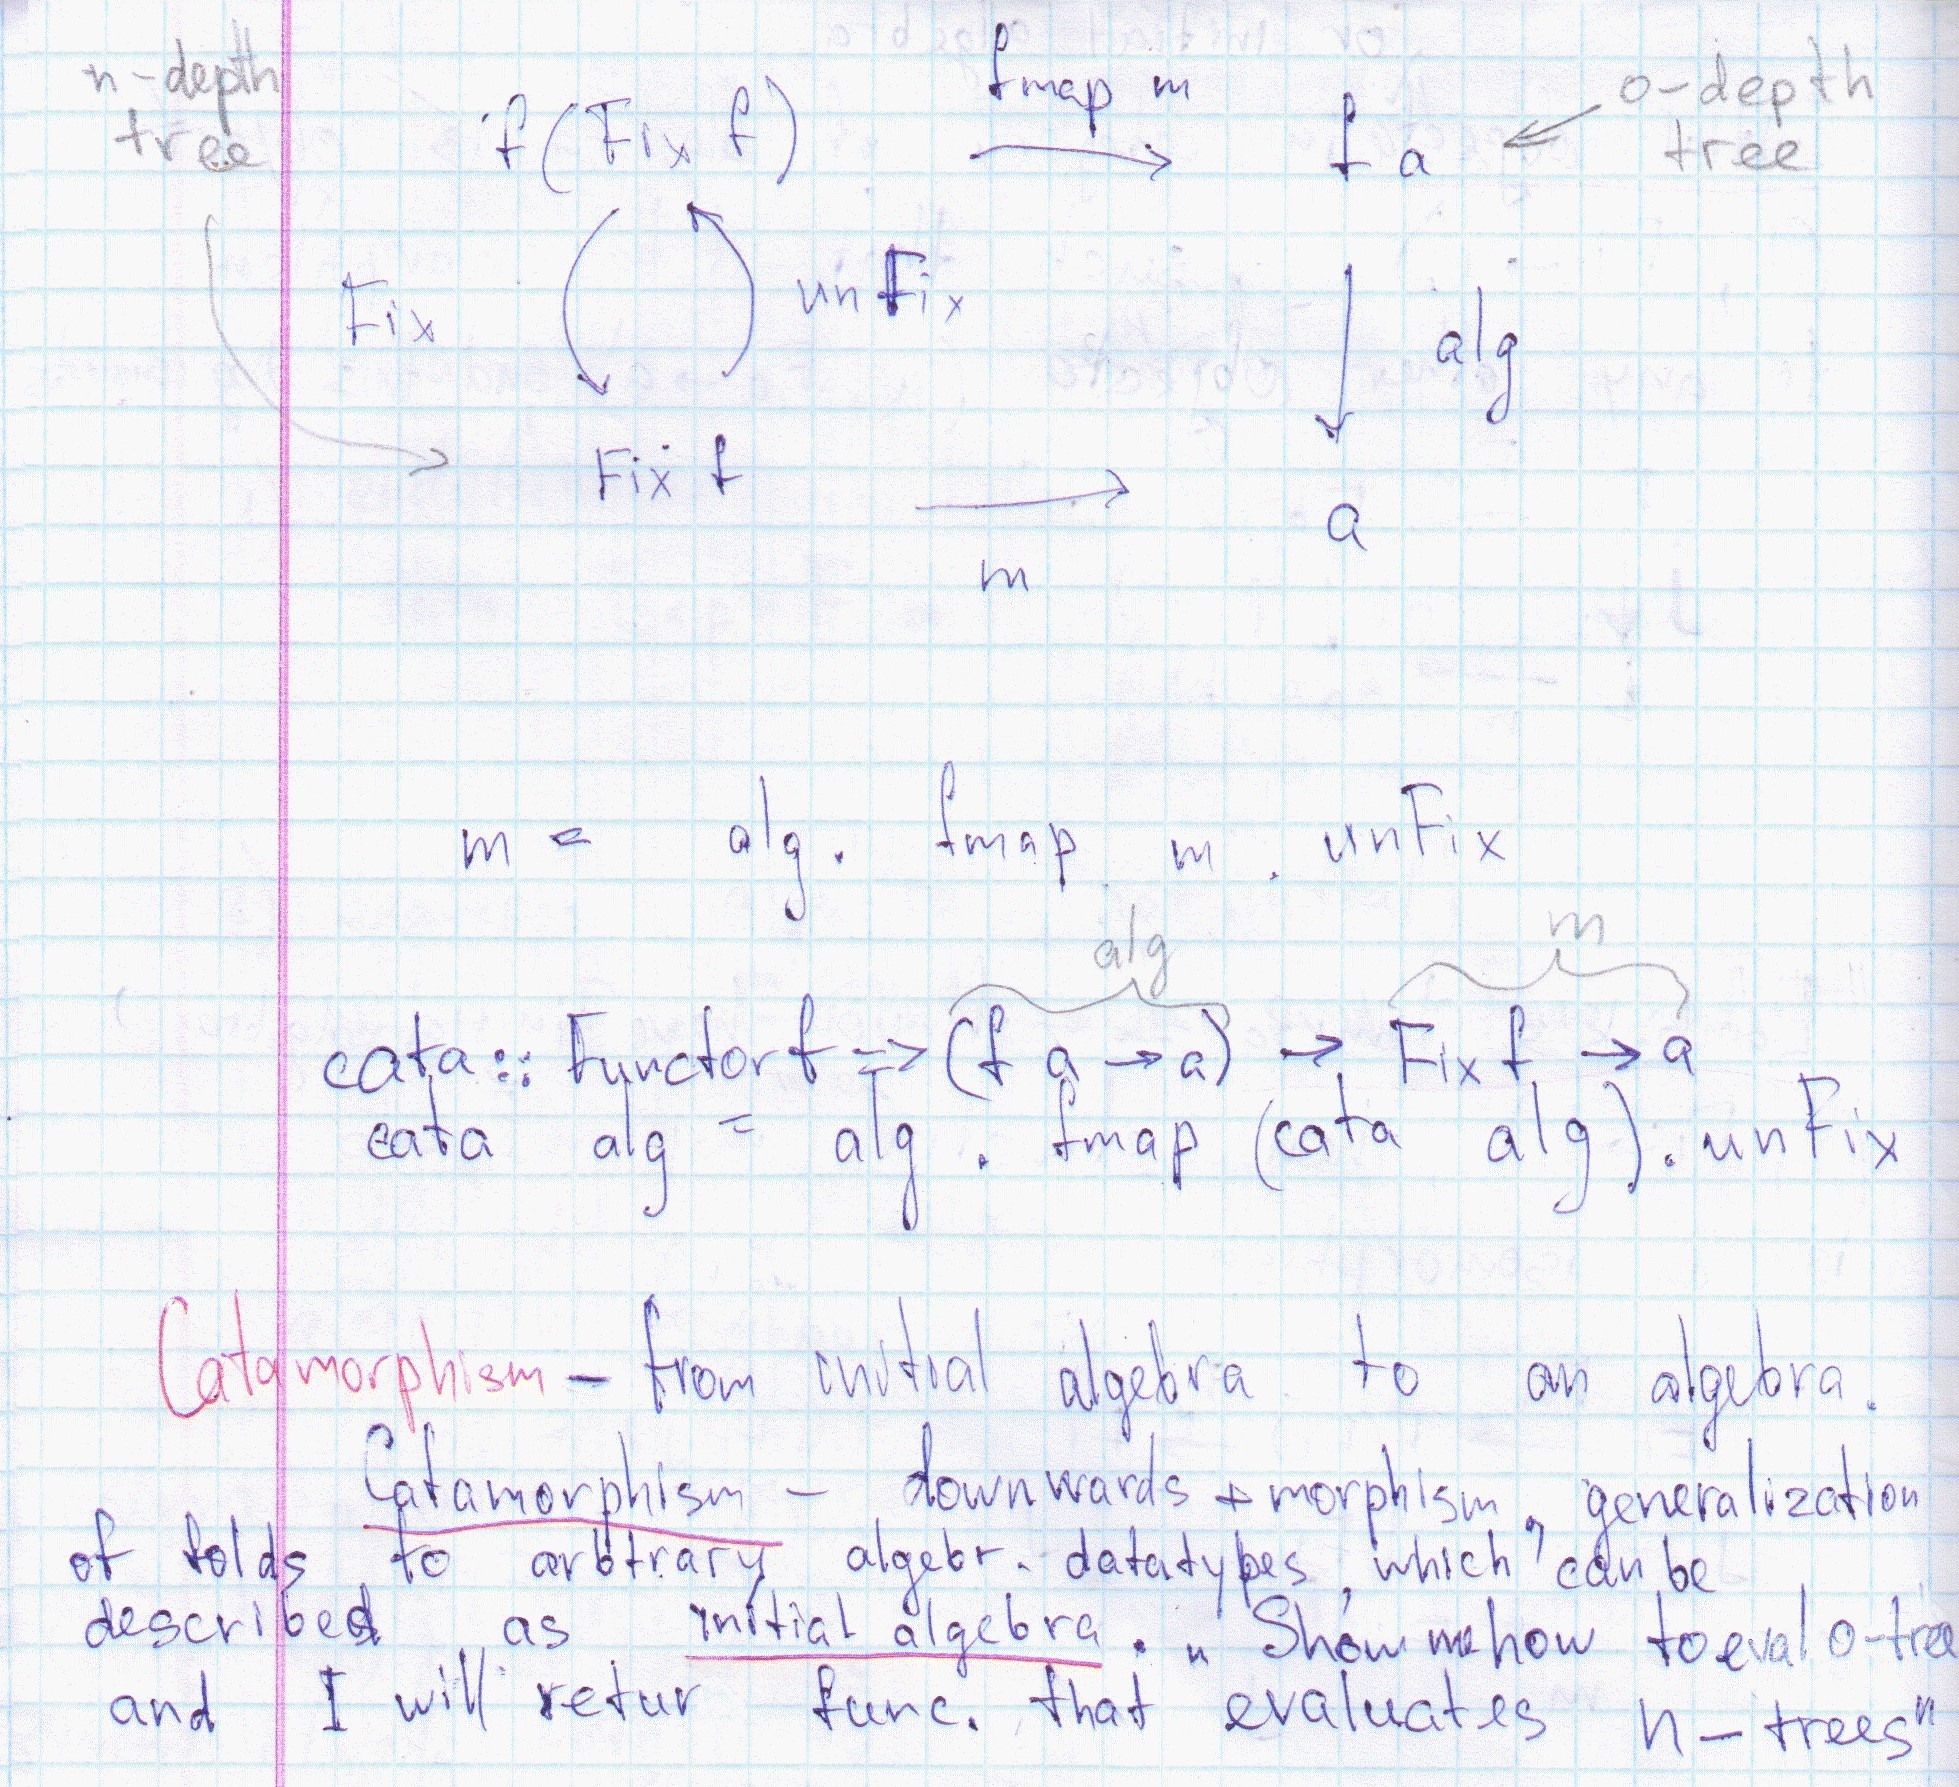 n-depth
tree
f(Fix f)
fmap m
f a
0-depth
tree
Fix
unFix
alg
Fix f
m
a
m = alg. fmap m . unFix
alg
m
cata:: Functor f => (f a → a) → Fix f → a
cata alg = alg . fmap (cata alg). unFix
Catamorphism – from initial algebra to an algebra.
Catamorphism – downwards + morphism, generalization
of folds to arbtrary algebr. datatypes, which can be
described as initial algebra. „Show me how to eval 0-tree
and I will retur func. that evaluates n-trees"